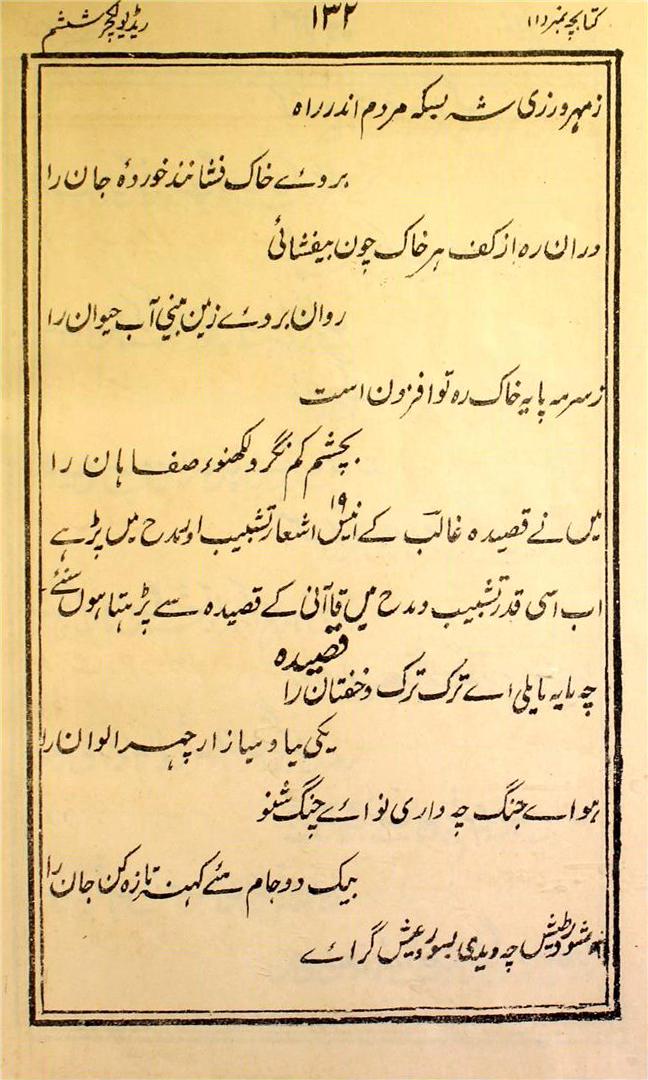 کتابچہ نمبر (۱) ۱۳۲ ریڈیو لکچر ششم
زمہر ورزی شہ بسکہ مردم اندر راہ
بروئے خاک فشانند خوردۂ جان را
دران رہ از کف ہر خاک چون بیفشائی
روان بروئے زمین بینی آب حیوان را
زسرمہ پایہ خاک رہ تو افزون است
بچشم کم نگرد لکھنوٴ صفاہان را
میں نے قصیدہ غالب کے انیس ۱۹ اشعار تشبیب اور مدح میں پڑہے
اب اسی قدر تشبیب و مدح میں قاآنی کے قصیدہ سے پڑہتا ہوں سنئے
قصیدہ
چہ مایہ مایلی اے ترک ترک و خفتان را
یکی بیا و بیازار چہر الوان را
ہواے جنگ چہ داری نواے چنگ شنو
بیک دو جام مئے کہنہ تازہ کن جان را
چہ دیدی بسور عیش گراے